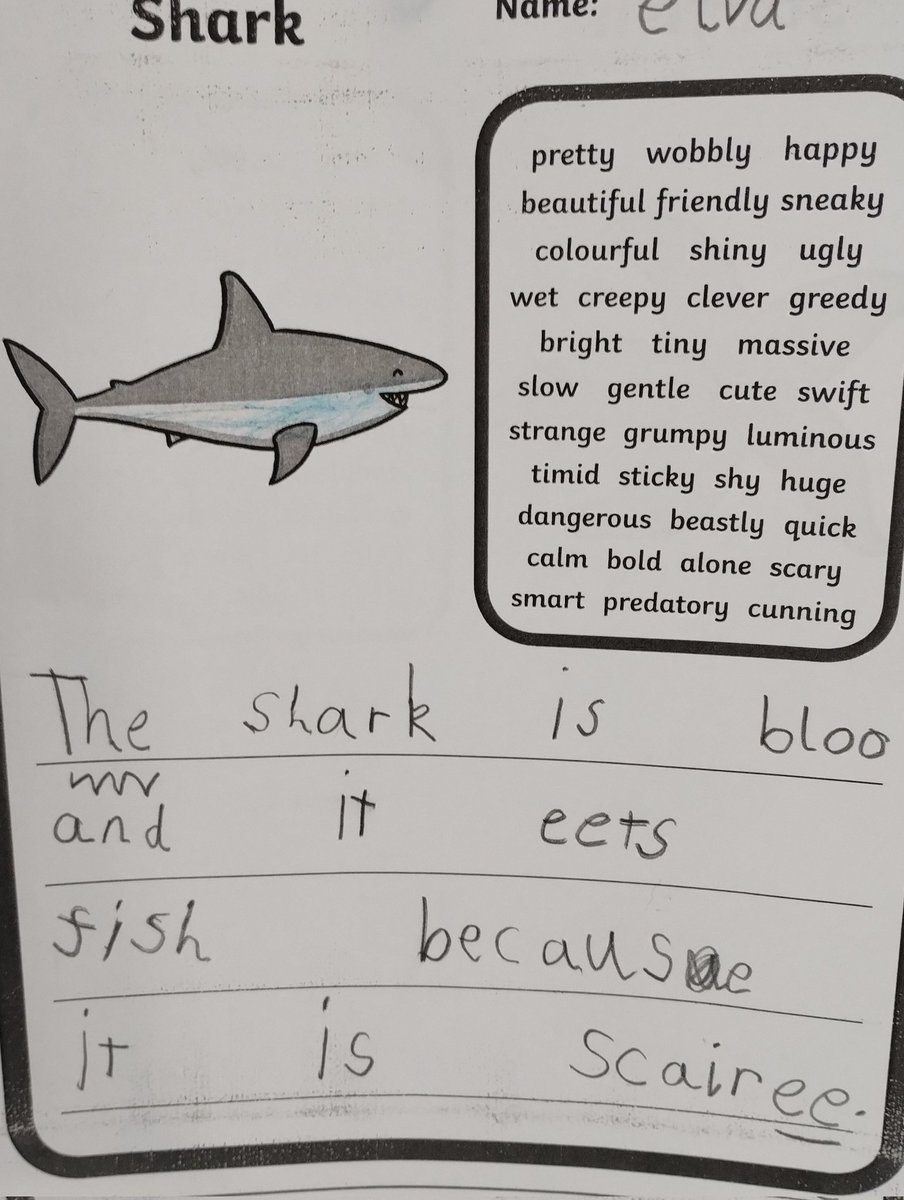 Shark
Name: elva
pretty wobbly happy
beautiful friendly sneaky
colourful shiny ugly
wet creepy clever greedy
bright tiny massive
slow gentle cute swift
strange grumpy luminous
timid sticky shy huge
dangerous beastly quick
calm bold alone scary
smart predatory cunning
The shark is bloo
and it eets
fish because
it is scairee.